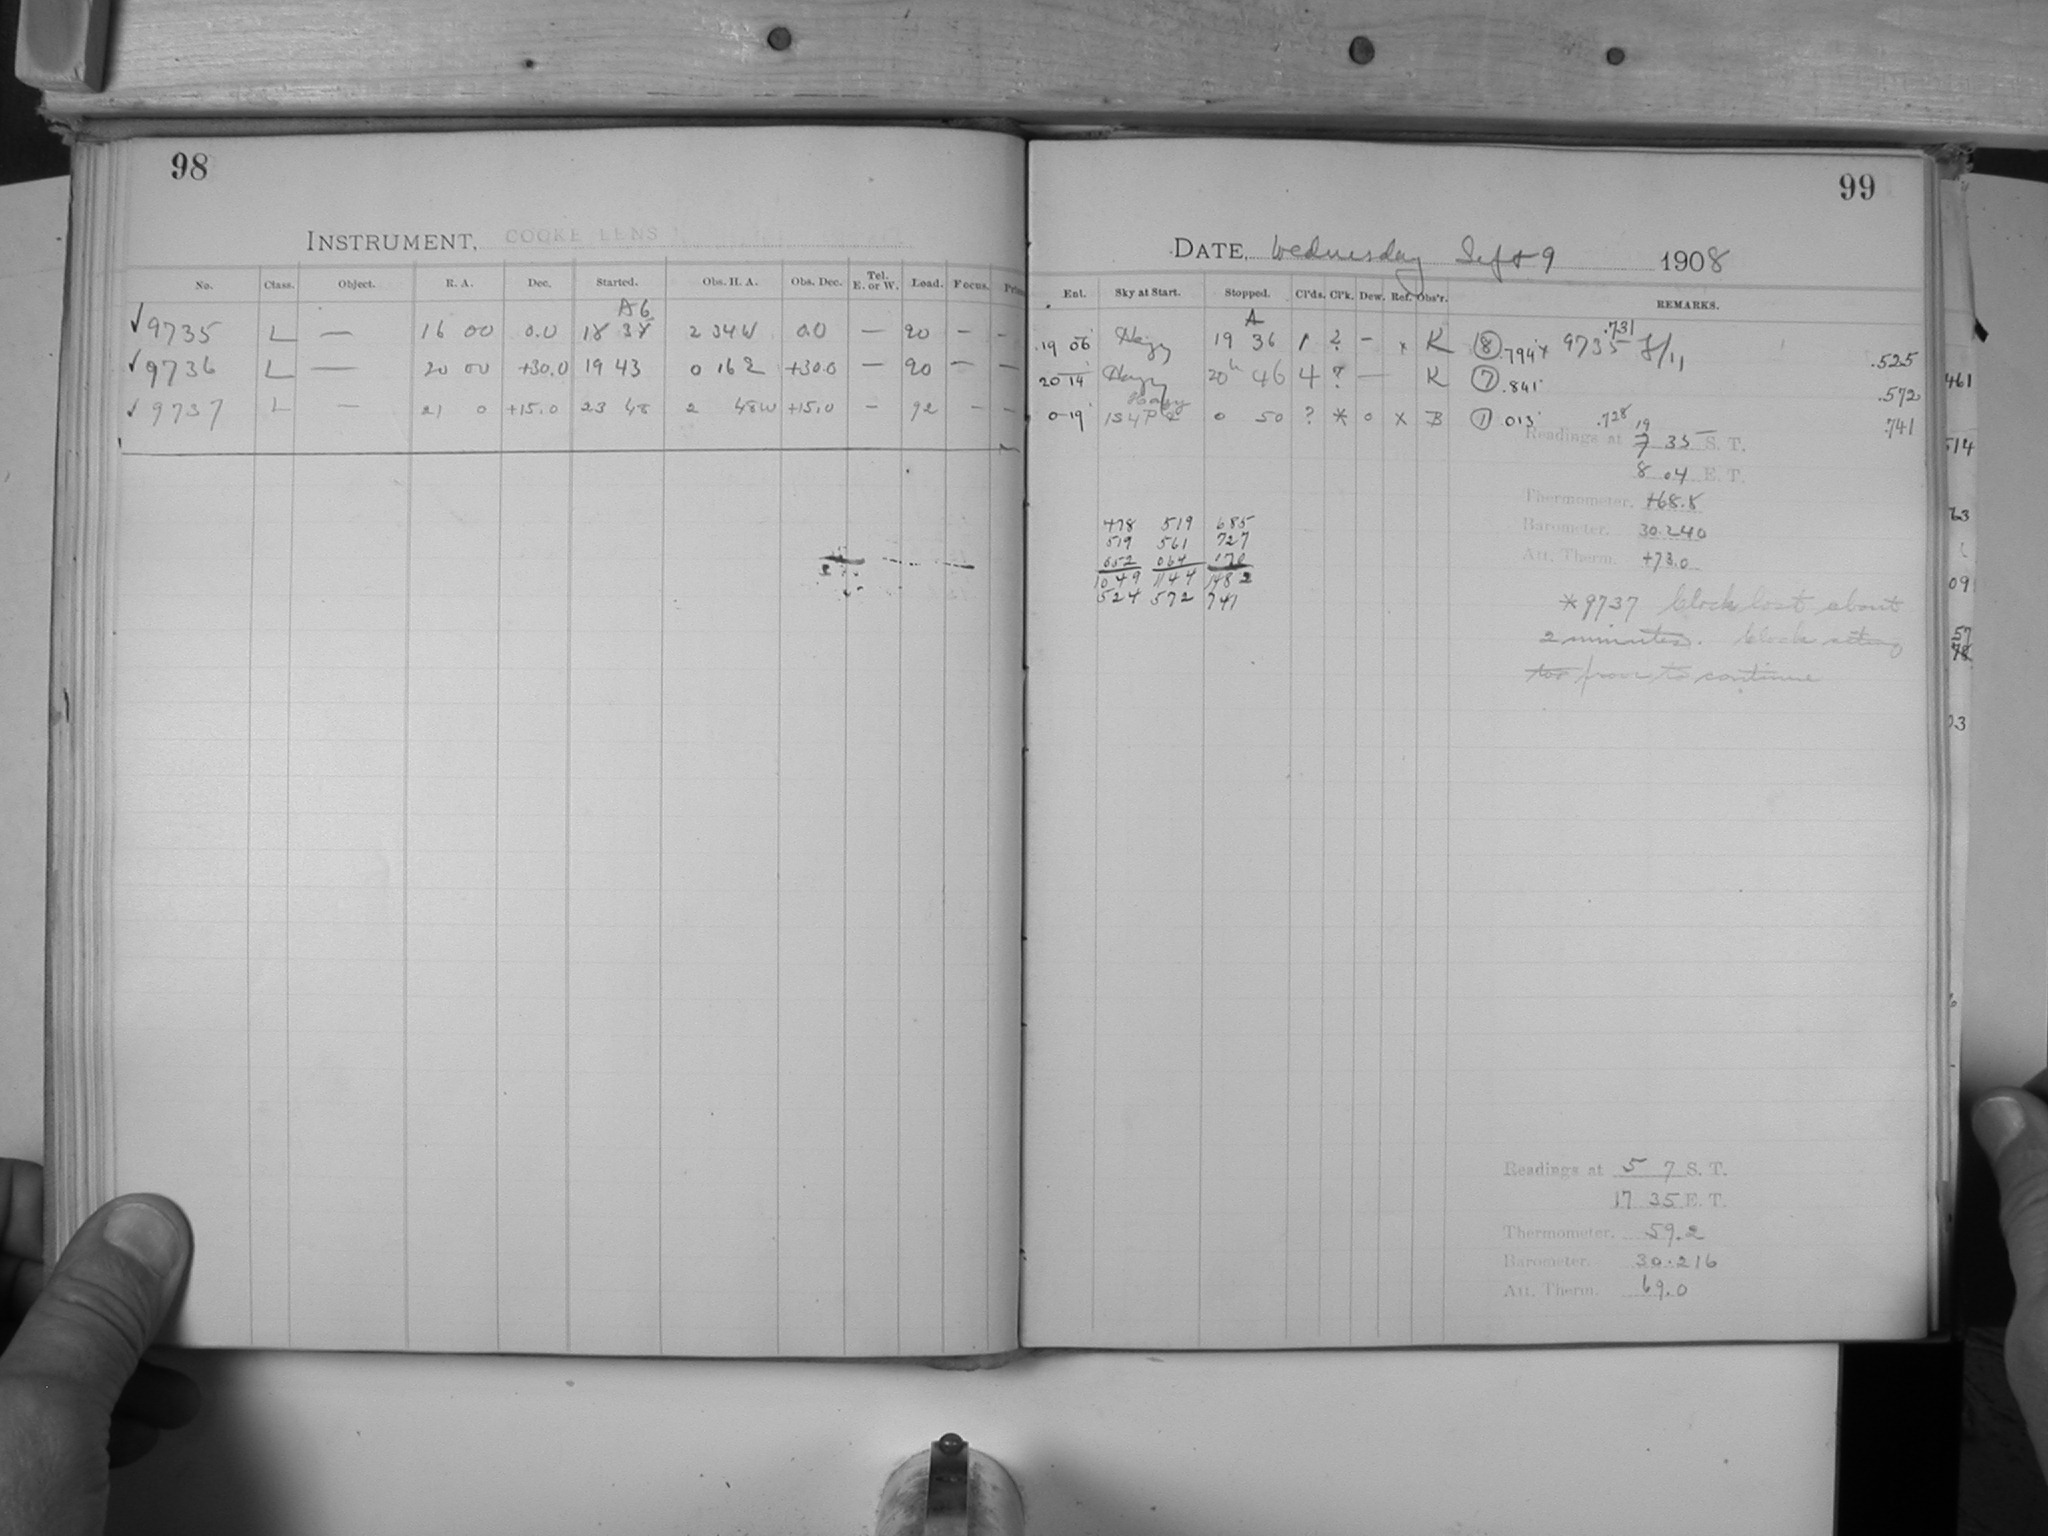 98
INSTRUMENT, COOKE LENS
No. Class. Object. R. A. Dec. Started. Obs. H. A. Obs. Dec. Tel. E. or W. Load. Focus.
A6
✓ 9735 L — 16 00 0.0 18 38 2 34W 0.0 — 90 — -
✓ 9736 L — 20 00 +30.0 19 43 0 16 E +30.0 — 90 — —
✓ 9737 L — 21 0 +15.0 23 48 2 48W +15.0 - 92 - -
99
DATE, Wednesday Sept 9 1908
Ent. Sky at Start. Stopped. Cl'ds. Cl'k. Dew. Ref. Obs'r. REMARKS.
A
19 06 Hazy 19 36 1 ? - x K (8) .794 x 9735 .731 f/11 .525
20 14 Hazy 20h 46 4 ? — K (7) .841 .572
Hazy
0 19 1S4P 0 50 ? * 0 x B (1) .013 .728 .741
19
Readings at 7 35 S. T.
8 04 E. T.
Thermometer. +68.8
Barometer. 30.240
Att. Therm. +73.0
478 519 685
519 561 727
052 064 070
1049 1144 1482
524 572 741
* 9737 Clock lost about
2 minutes. Clock
too poor to continue
Readings at 5 7 S. T.
17 35 E. T.
Thermometer. 59.2
Barometer. 30.216
Att. Therm. 69.0
461
514
63
09
57
78
03